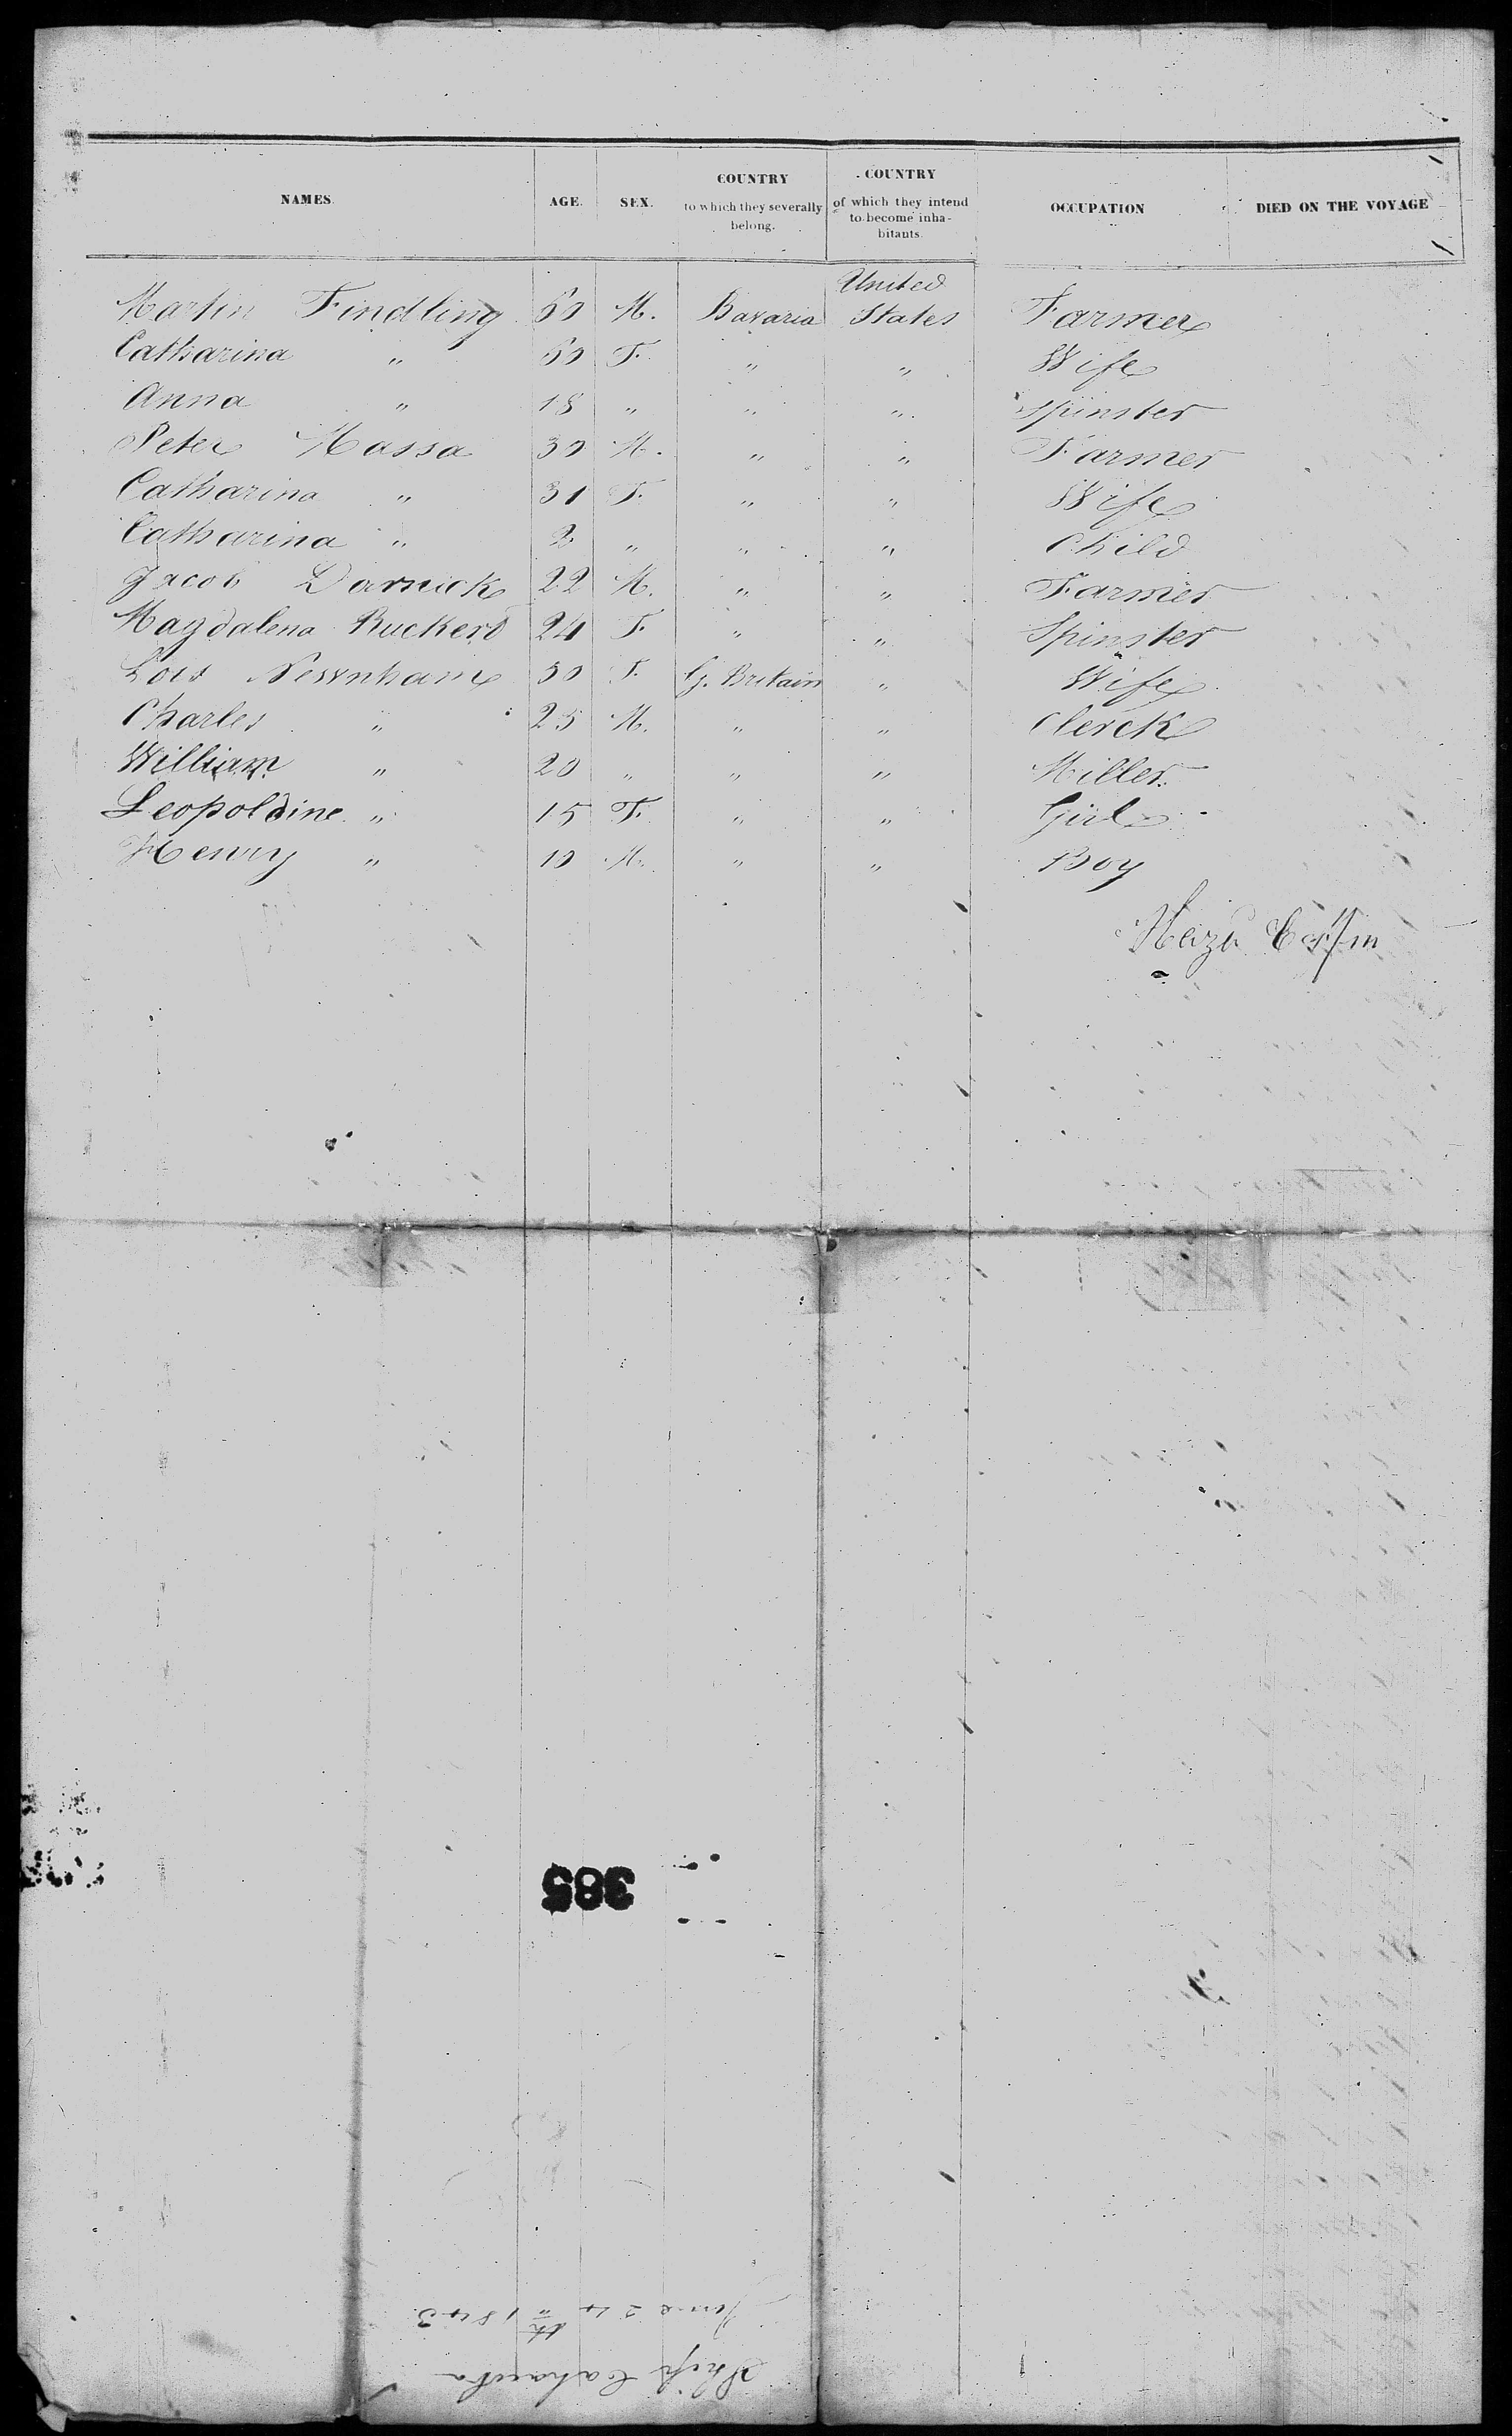 NAMES. AGE. SEX. COUNTRY to which they severally belong. COUNTRY of which they intend to become inha- bitants. OCCUPATION DIED ON THE VOYAGE
United
Martin Findling 60 M. Bavaria States Farmer
Catharina " 60 F. " " Wife
Anna " 18 " " " Spinster
Peter Massa 30 M. " " Farmer
Catharina " 31 F. " " Wife
Catharina " 2 " " " Child
Jacob 22 M. " " Farmer
Magdalena Ruckerd 24 F. " " Spinster
Lois Newnham 50 F. G. Britain " Wife
Charles " 25 M. " " Clerck
William " 20 " " " Miller
Leopoldine " 15 F. " " Girl
Henry " 10 M. " " Boy
Coffin
385
Ship Cahawba
June 24th 1843